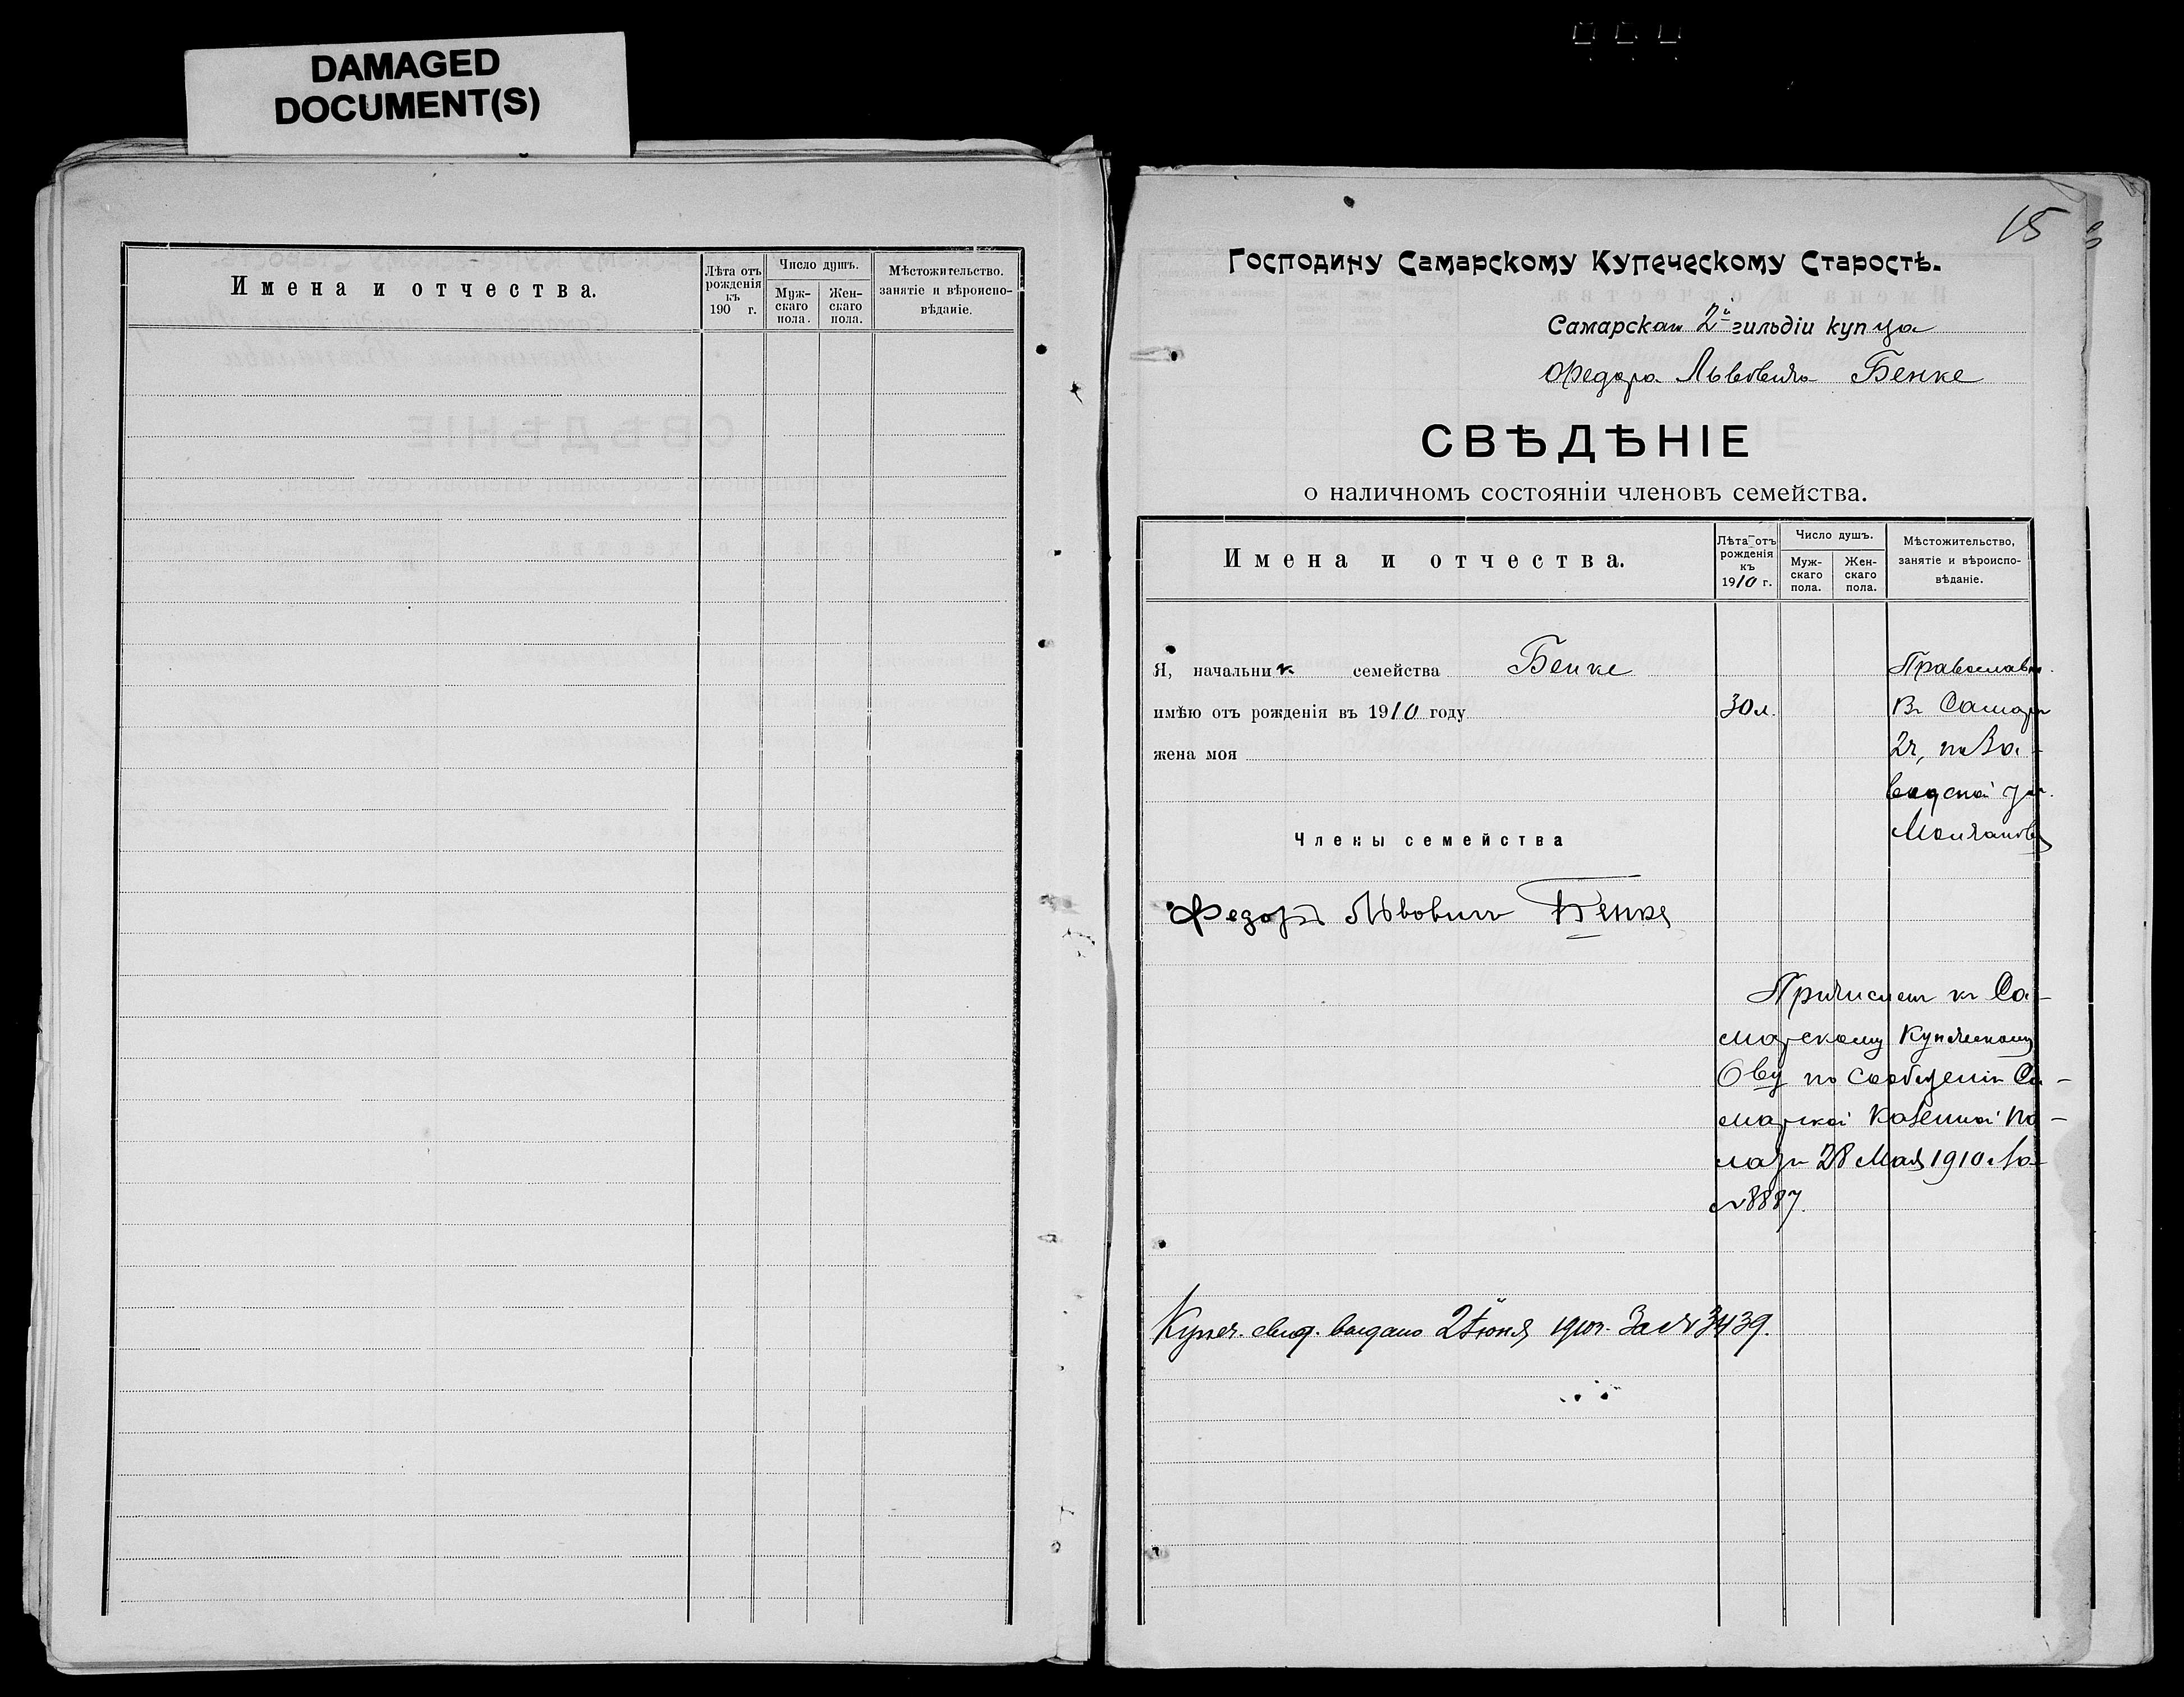 DAMAGED
DOCUMENT(S)
Имена и отчества.
Лѣта отъ рожденія къ 190 г.
Число душъ.
Муж-скаго пола.
Жен-скаго пола.
Мѣстожительство. занятіе и вѣроиспо-вѣданіе.
15
Господину Самарскому Купеческому Старостѣ.
Самарскаго 2й гильдіи купца
Федора Львовича Бенке
СВѢДѢНІЕ
о наличномъ состояніи членовъ семейства.
Имена и отчества.
Лѣта отъ рожденія къ 1910 г.
Число душъ.
Муж-скаго пола.
Жен-скаго пола.
Мѣстожительство, занятіе и вѣроиспо-вѣданіе.
Я, начальник семейства Бенке Православн.
имѣю отъ рожденія въ 1910 году 30 л. Въ Самарѣ
жена моя 2 ч, по За-
водской ул.
Молчанова
Члены семейства
Федоръ Львовичъ Бенке
Причислен къ Са-
марскому Купеческому
О-ву по сообщенію Са-
марской Казенной Па-
латы 28 Мая 1910 за
№ 8887.
Купеч. свид. выдано 2 Іюня 1910 г. За № 3439.